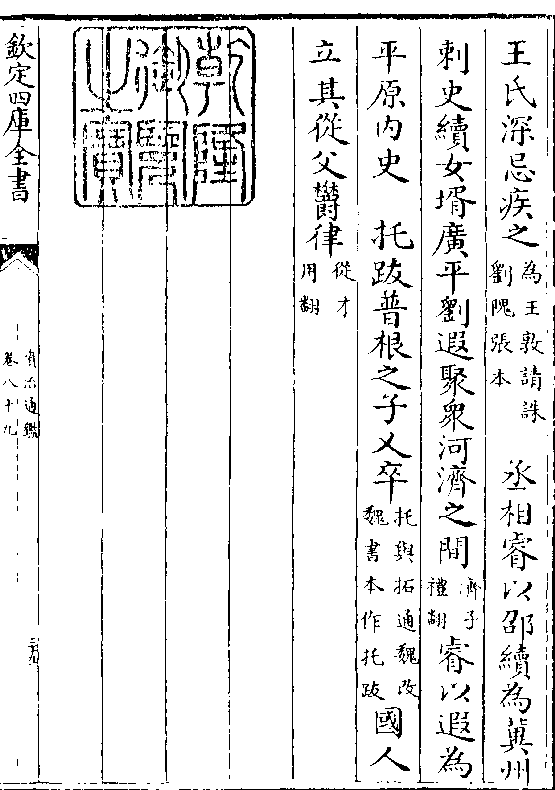 王氏深忌疾之為王敦請誅劉隗張本　丞相睿以邵續為冀州
刺史續女壻廣平劉遐聚衆河濟之間濟子禮翻睿以遐為
平原内史　托跋普根之子乂卒托與拓通魏改魏書本作托跋國人
立其從父鬱律從才用翻
乾隆御覽之寶
欽定四庫全書
資治通鑑
卷八十九